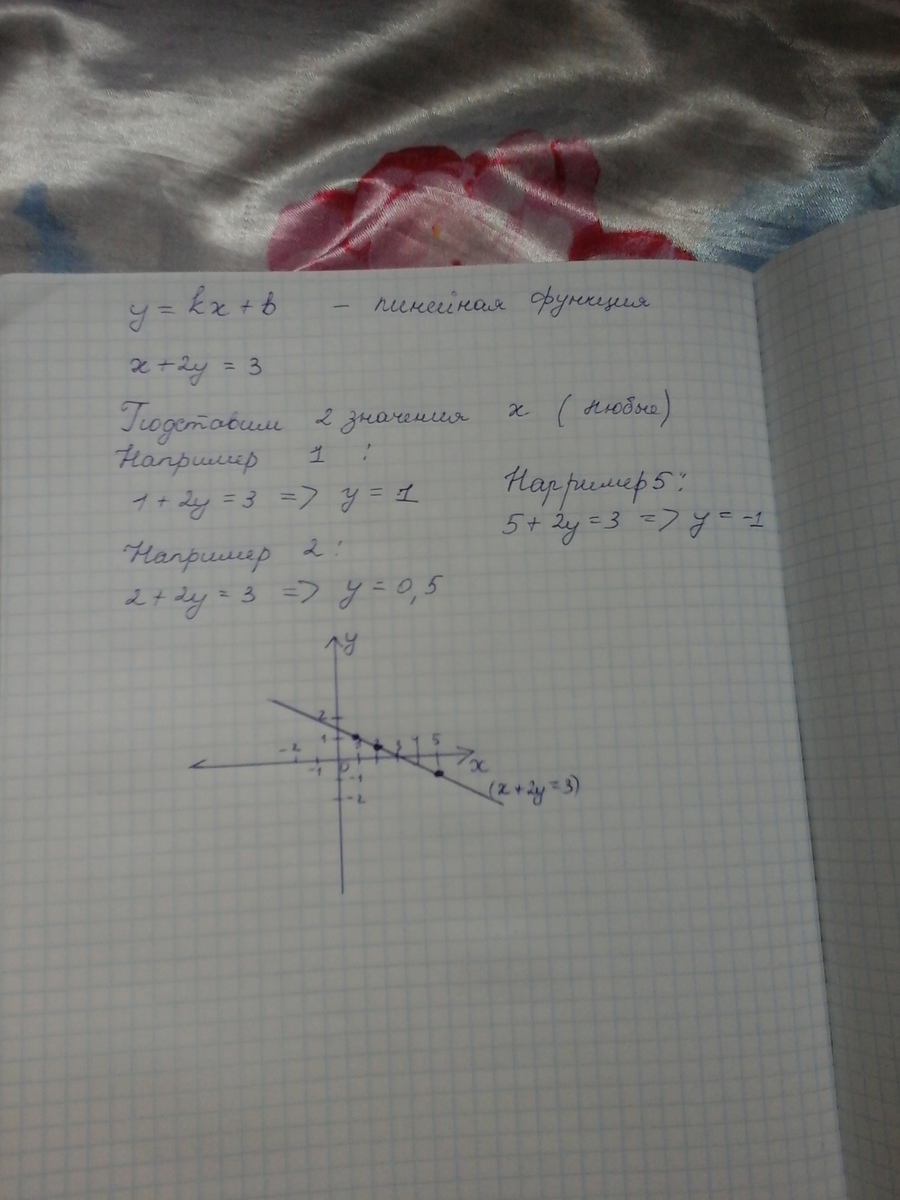 y = kx + b - линейная функция
x + 2y = 3
Подставим 2 значения x (любые)
Например 1 :
1 + 2y = 3 => y = 1
Например 5 :
5 + 2y = 3 => y = -1
Например 2 :
2 + 2y = 3 => y = 0,5
y
2
1
-2 -1 0 1 2 3 4 5 x
-1
-2
(x + 2y = 3)